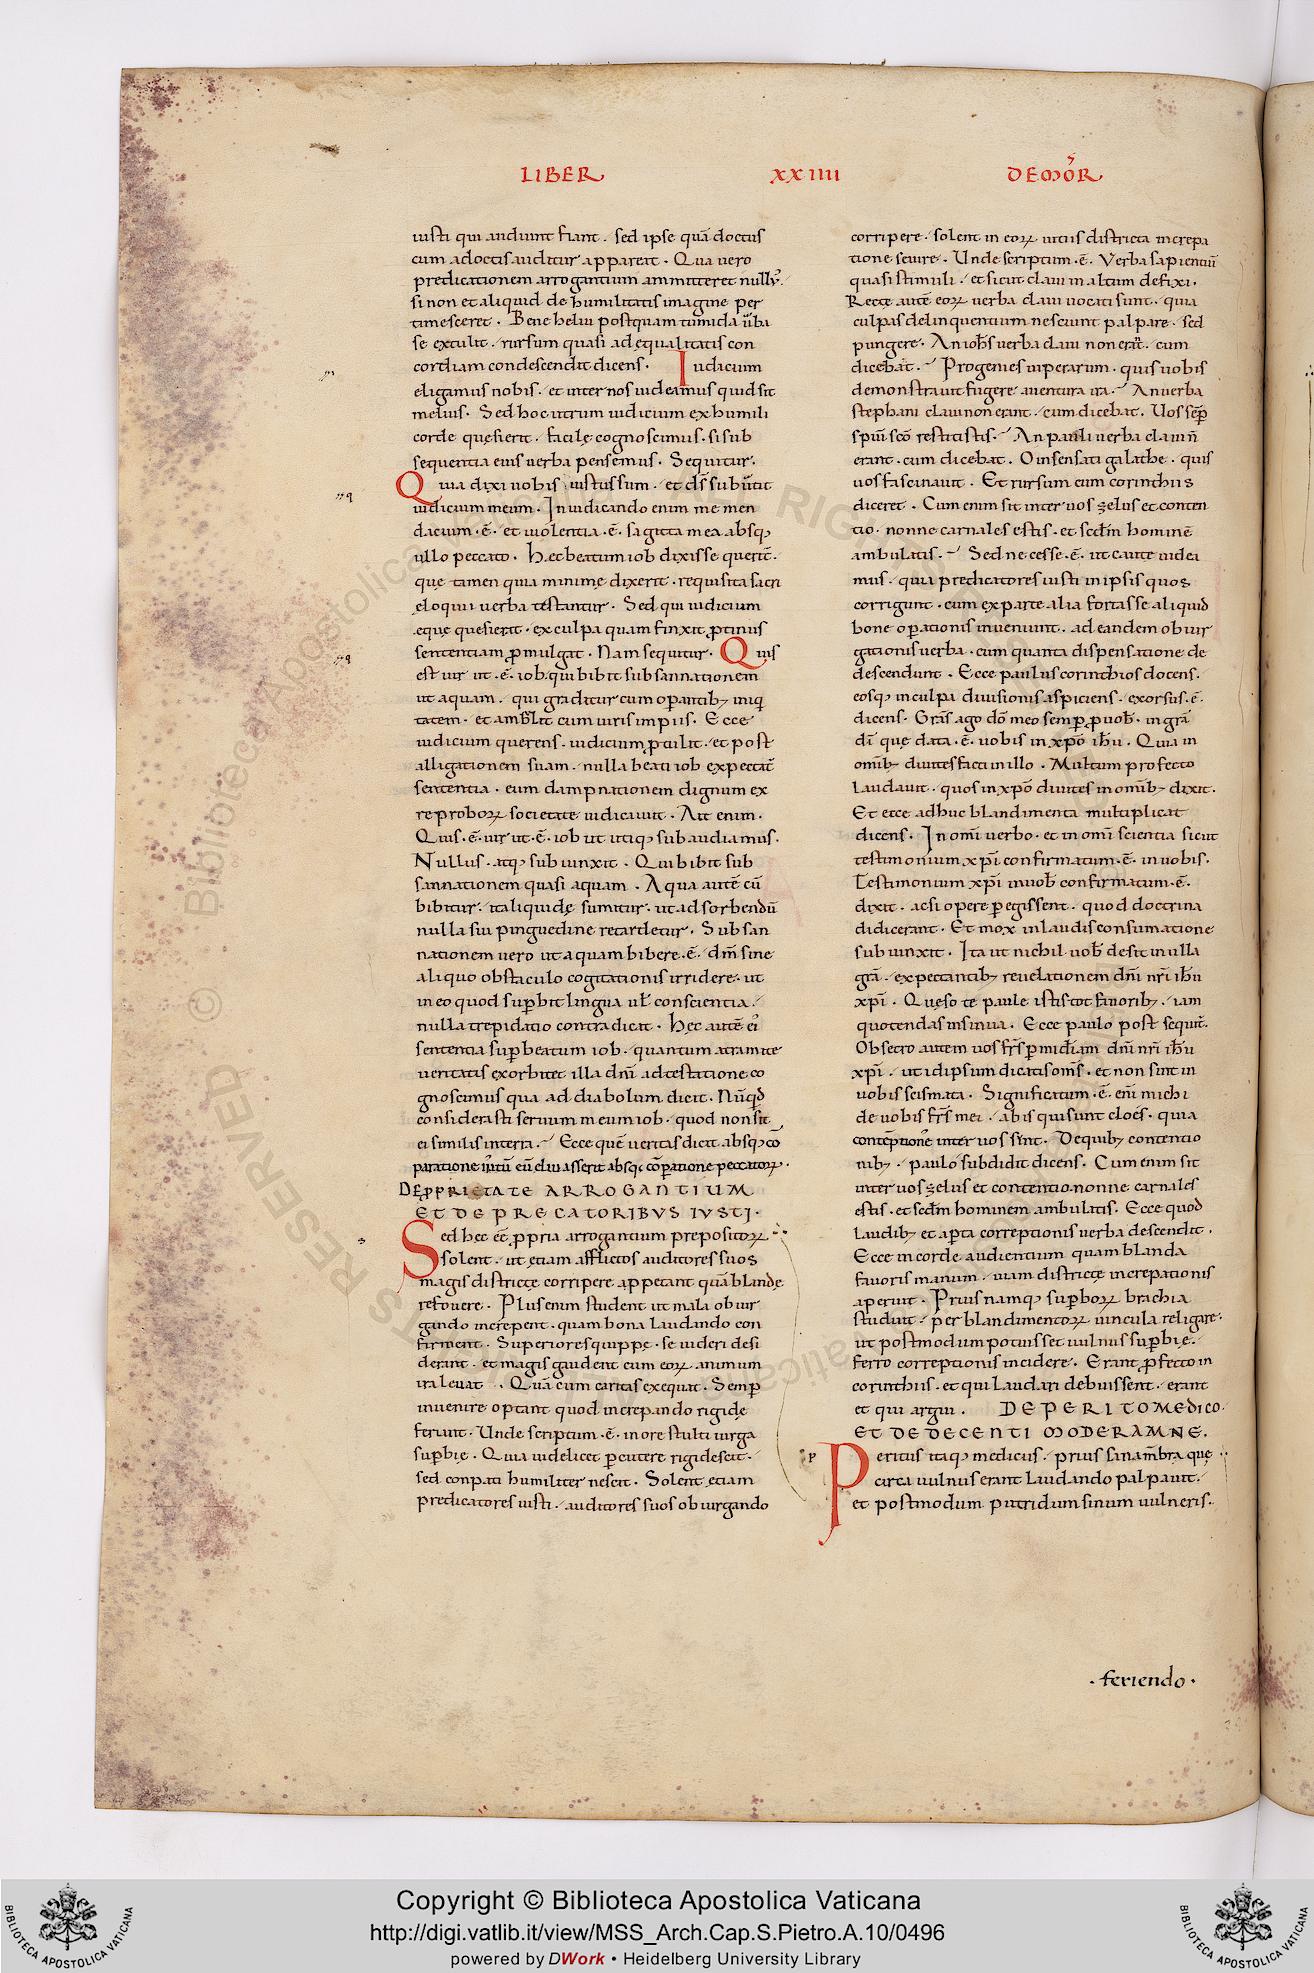 LIBER XXIIII DE MOR̄
iusti qui audiunt fiant . sed ipse quā doctus
cum a doctis auditur appareat . Qua uero
predicationem arrogantium ammitteret nullꝰ .
si non et aliquid de humilitatis imagine per
timesceret . Bene heliu postquam tumida uerba
se extulit . rursum quasi ad equalitatis con
cordiam condescendit dicens . Iudicium
eligamus nobis . et inter nos uideamus quid sit
melius . Sed hoc utrum iudicium ex humili
corde quesierit . facile cognoscimus . si sub
sequentia eius uerba pensemus . Sequitur .
Quia dixi uobis iustus sum . et d̄s subūtit
iudicium meum . In iudicando enim me men
dacium . ē . et uiolentia . ē . sagitta mea absqꝫ
ullo peccato . Hec beatum iob dixisse querit̄ .
que tamen quia minime dixerit . requisita sacri
eloquii uerba testantur . Sed qui iudicium
eque quesierit . ex culpa quam finxit ꝓtinus
sententiam ꝓmulgat . Nam sequitur . Quis
est uir ut . ē . iob . qui bibit subsannationem
ut aquam . qui graditur cum opantibꝫ iniqi
tatem . et amb̄lt cum uiris impiis . Ecce
iudicium querens . iudicium ꝓtulit . et post
alligationem suam . nulla beati iob expectat̄
sententia . eum dampnationem dignum ex
reproboꝝ societate iudicauit . Ait enim .
Quis . ē . uir ut . ē . iob ut utiqꝫ subaudiamus .
Nullus . atqꝫ subiunxit . Qui bibit sub
sannationem quasi aquam . Aqua autē cū
bibitur . ita liquide sumitur . ut ad sorbendū
nulla sui pinguedine retardetur . Subsan
nationem uero ut aquam bibere . ē . dm̄ sine
aliquo obstaculo cogitationis irridere . ut
in eo quod suꝑbit lingua ul̄ conscientia .
nulla trepidatio contradicat . Hec autē eiꝰ
sententia suꝑ beatum iob . quantum a tramite
ueritatis exorbitet illa dn̄i adtestatione co
gnoscimus qua ad diabolum dicit . Nūqid
considerasti seruum meum iob . quod non sit
ei similis in terra . Ecce quē ueritas dicit absqꝫ cō
DE ꝓPRIETATE ARROGANTIUM
ET DE PRECATORIBVS IVSTI .
Sed hec eē ꝓpria arrogantium prepositoꝝ
solent . ut etiam afflictos auditores suos
magis districte corripere appetant quā blande
refouere . Plus enim student ut mala obiur
gando increpent . quam bona laudando con
firment . Superiores quippe . se uideri desi
derant . et magis gaudent cum eoꝝ animum
ira leuat . Quā cum caritas exequat . Semꝑ
inuenire optant quod increpando rigide
feriunt . Unde scriptum . ē . in ore stulti uirga
suꝑbie . Quia uidelicet ꝑcutere rigide scit .
sed conpati humiliter nescit . Solent etiam
predicatores iusti . auditores suos obiurgando
corripere . solent in eoꝝ uitiis districta increpa
tione seuire . Unde scriptum . ē . Verba sapientiū
quasi stimuli . et sicut claui in altum defixi .
Recte autē eoꝝ uerba claui uocati sunt . quia
culpas delinquentium nesciunt palpare . sed
pungere . An ioh̄s uerba claui non erāt . cum
dicebat . Progenies uiperarum . quis uobis
demonstrauit fugere a uentura ira . An uerba
stephani claui non erant . cum dicebat . Uos sēꝑ
spū sc̄o restitistis . An pauli uerba claui n̄
erant . cum dicebat . O insensati galathe . quis
uos fascinauit . Et rursum cum corinthiis
diceret . Cum enim sit inter uos zelus et conten
tio . nonne carnales estis . et sedm̄ hominē
ambulatis . Sed necesse . ē . ut caute uidea
mus . quia predicatores iusti in ipsis quos
corrigunt . cum ex parte alia fortasse aliquid
bone oꝑationis inueniunt . ad eandem obiur
gationis uerba . cum quanta dispensatione de
descendunt . Ecce paulus corinthios docens .
eosqꝫ in culpa diuisionis aspiciens . exorsus . ē .
dicens . Grās ago dō meo semꝑ ꝓ uob̄ . in grā
dī que data . ē . uobis in xp̄o ih̄u . Quia in
omībꝫ diuites facti in illo . Multum profecto
laudauit . quos in xp̄o diuites in omībꝫ dixit .
Et ecce adhuc blandimenta multiplicat
dicens . In omī uerbo . et in omī scientia sicut
testimonium xp̄i confirmatum . ē . in uobis .
Testimonium xp̄i in uob̄ confirmatum . ē .
dixit . ac si opere ꝑegissent . quod doctrina
didicerant . Et mox in laudis consumatione
subiunxit . Ita ut nichil uob̄ desit in ulla
grā . expectantibꝫ reuelationem dn̄i nr̄i ih̄u
xp̄i . Queso te paule istis tot fauoribꝫ . iam
quo tendas insinua . Ecce paulo post sequit̄ .
Obsecro autem uos fr̄s ꝑ mīd̄iam dn̄i nr̄i ih̄u
xp̄i . ut idipsum dicatis om̄s . et non sint in
uobis scismata . Significatum . ē . eni̅ michi
de uobis fr̄s mei . ab is qui sunt cloes . quia
contēptiones inter uos sint . De quibꝫ contentio
nibꝫ . paulo subdidit dicens . Cum enim sit
inter uos zelus et contentio . nonne carnales
estis . et sedm̄ hominem ambulatis . Ecce quod
laudibꝫ et aꝑta correptionis uerba descendit .
Ecce in corde audientium quam blanda
fauoris manum . uiam districte increpationis
aperuit . Prius namqꝫ suꝑboꝝ brachia
studuit . per blandimentoꝝ uincula religare .
ut postmodum potuisset uulnus suꝑbie .
ferro correptionis incidere . Erant ꝓfecto in
corinthiis . et qui laudari debuissent . erant
et qui argui . DE PERITO MEDICO .
ET DE DECENTI MODERAMNE .
Peritus itaqꝫ medicus . prius sana mēbra que
circa uulnus erant laudando palpauit .
et postmodum putridum sinum uulneris .
. feriendo .
Copyright © Biblioteca Apostolica Vaticana
http://digi.vatlib.it/view/MSS_Arch.Cap.S.Pietro.A.10/0496
powered by DWork • Heidelberg University Library
BIBLIOTECA APOSTOLICA VATICANA
BIBLIOTECA APOSTOLICA VATICANA